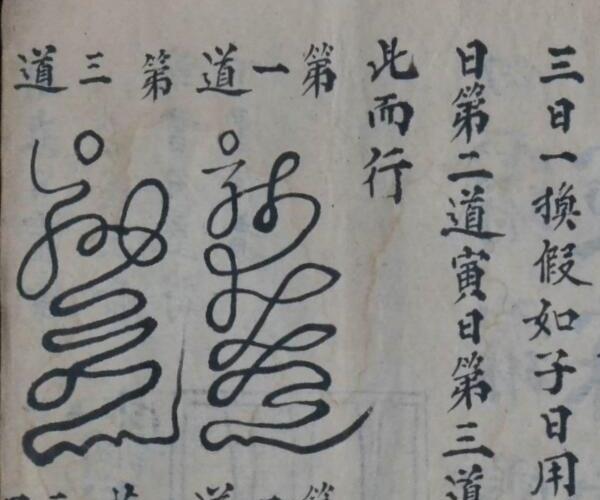 三日一換假如子日用
日第二道寅日第三道
此而行
第一道
第三道